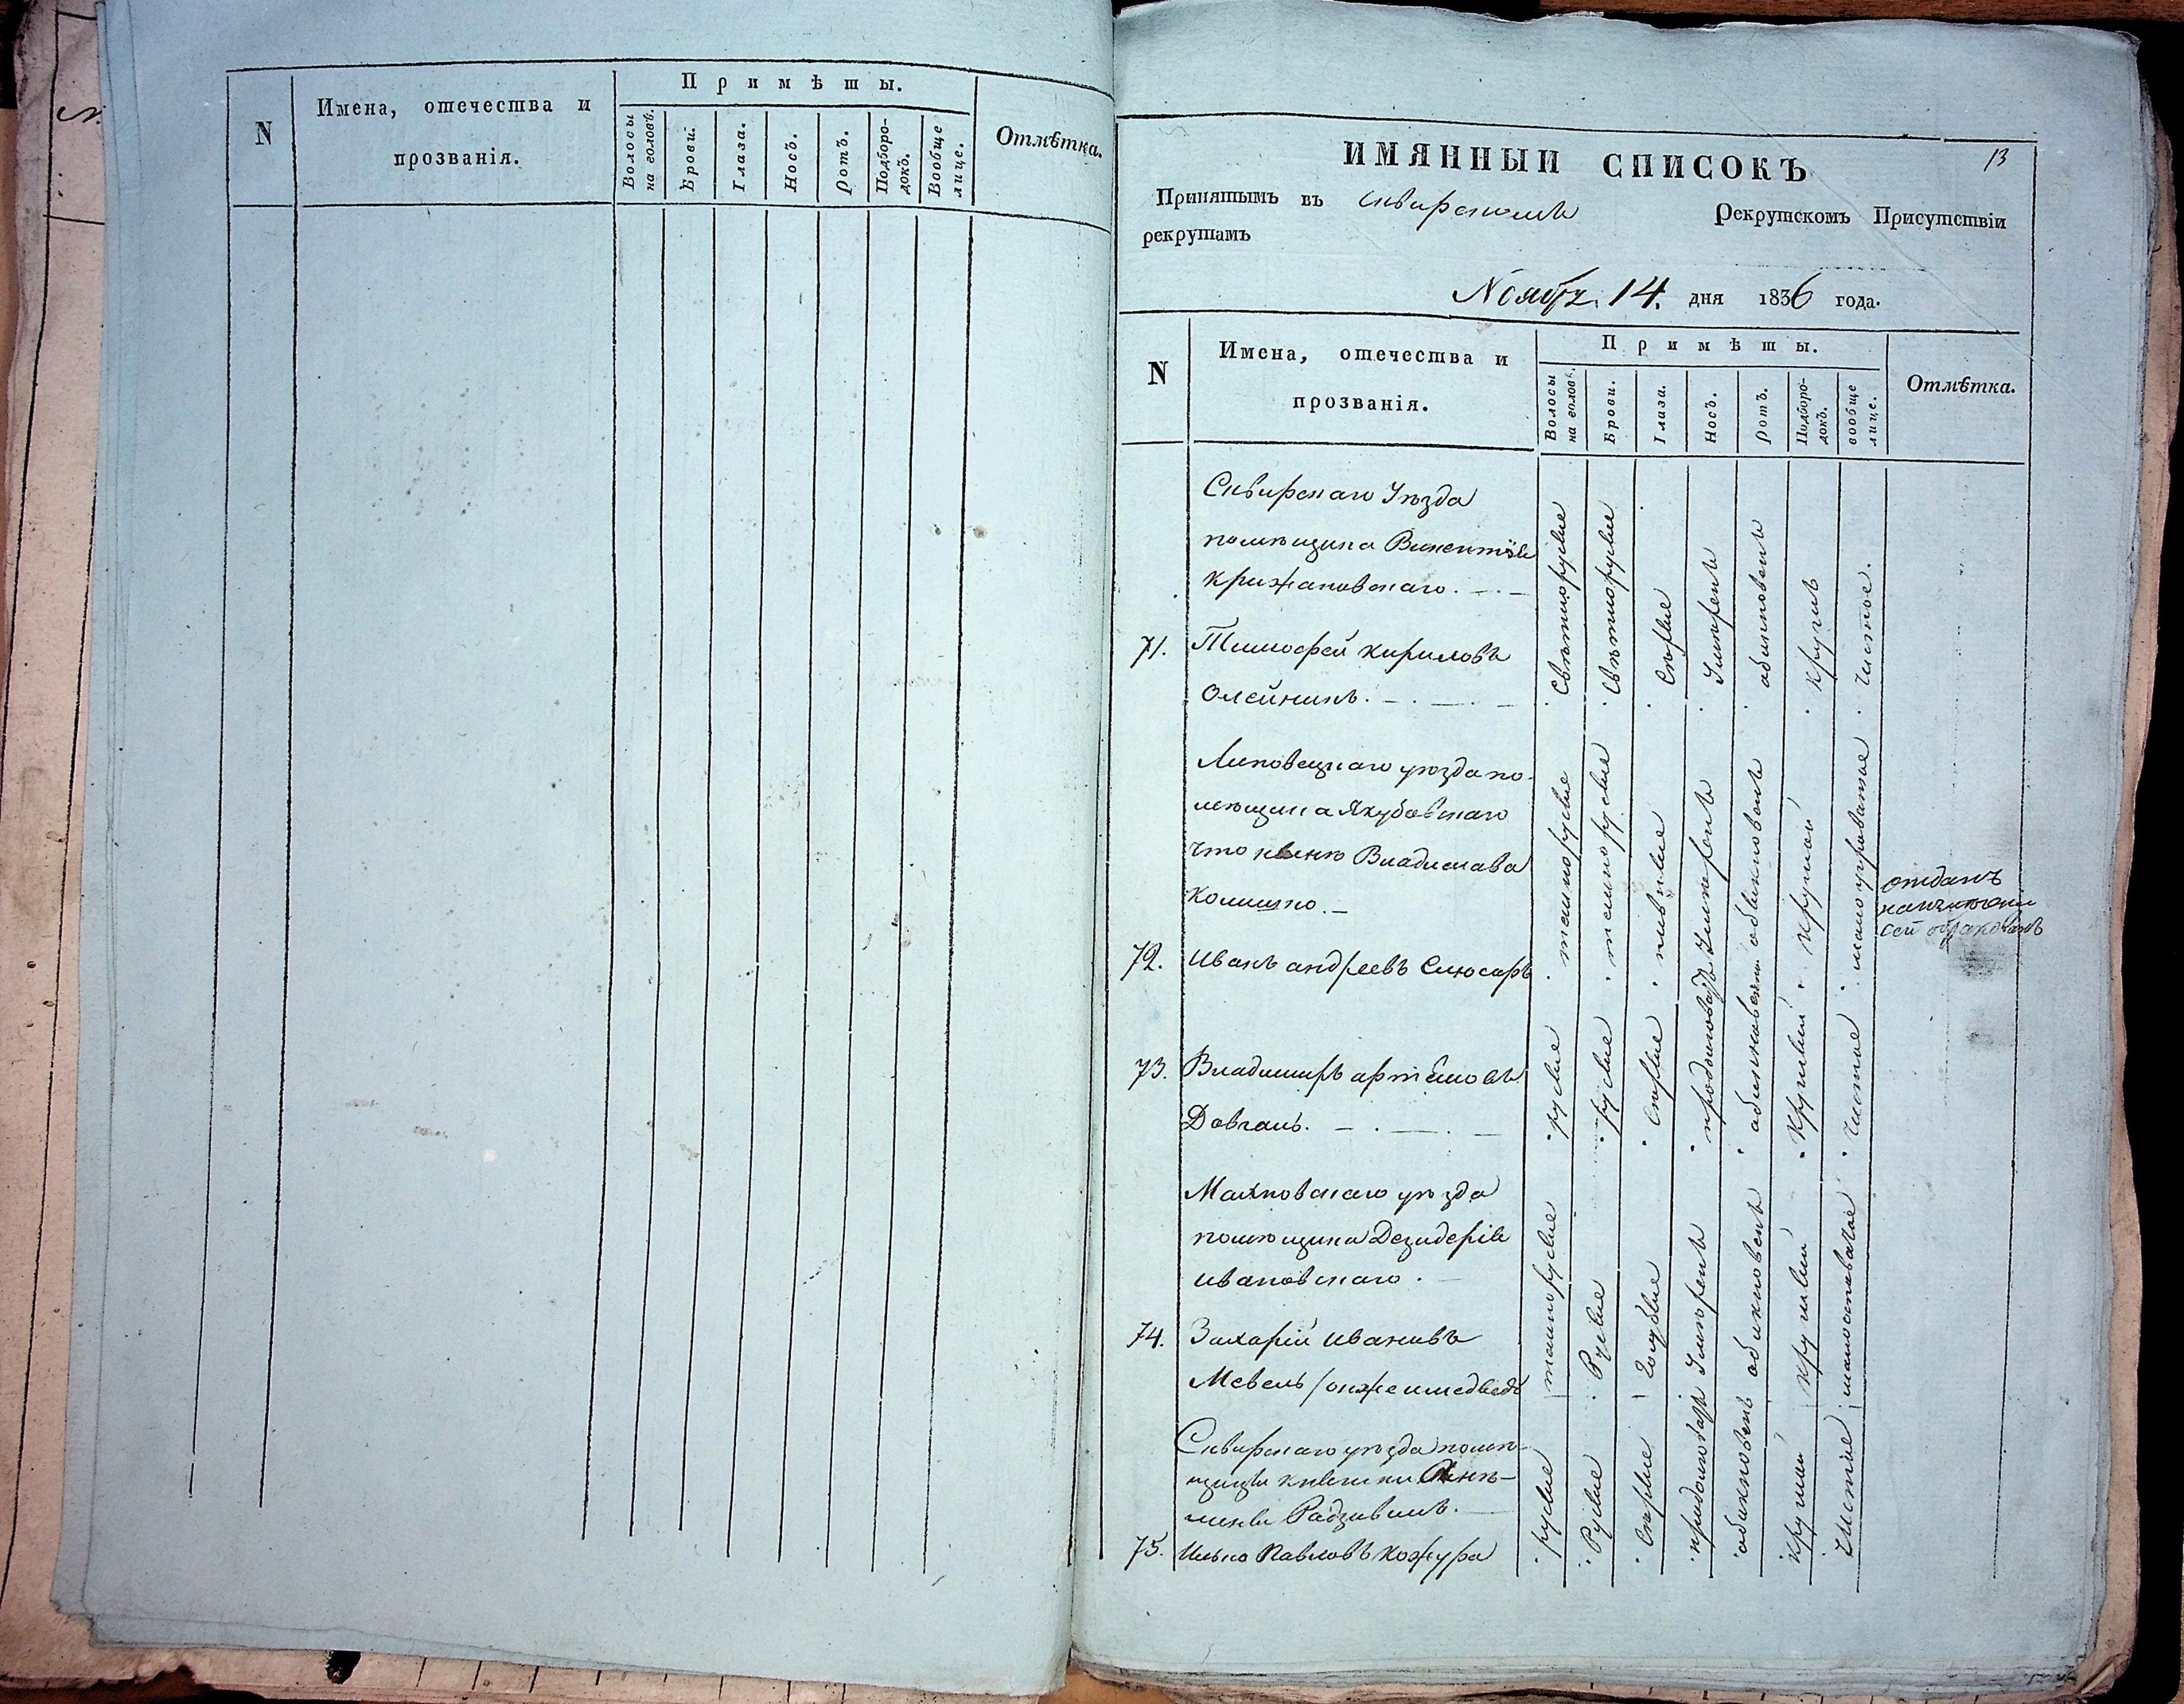 N
Имена, отечества и
прозванія.
Примѣты.
Волосы на головѣ.
Брови.
Глаза.
Носъ.
Ротъ.
Подборо-
докъ.
Вообще лице.
Отмѣтка.
13
ИМЯННЫЙ СПИСОКЪ
Принятымъ въ сквирскомъ Рекрутскомъ Присутствіи
рекрутамъ
14. дня 1836 года.
N
Имена, отечества и
прозванія.
Примѣты.
Волосы на головѣ.
Брови.
Глаза.
Носъ.
Ротъ.
Подборо-
докъ.
вообще лице.
Отмѣтка.
Сквирскаго Уѣзда
помѣщика Викентія
Крижановскаго.
71. Тимофей Кириловъ
Олейникъ.
свѣтлорусые
свѣтлорусые
сѣрые
умѣренъ
обикновенъ
круглъ
чистое.
Липовецкаго уѣзда по-
мѣщика Якубовскаго
Владислава
72. Иванъ андреевъ Слюсаръ
темнорусые
темнорусые
умѣренъ
обикновенъ
круглой
отданъ
73. Владимиръ артемовъ
Довгань.
русые
русые
сѣрые
продолговатъ
обикновенъ
круглый
чистое
Махновскаго уѣзда
помѣщика Дезидерія
ивановскаго.
74. Захарій ивановъ
темнорусые
Русые
голубые
умѣренъ
обикновенъ
круглый
Сквирскаго уѣзда помѣ-
щицы княгини
Радзивилъ.
75. Илько Павловъ Кожура
русые
Русые
сѣрые
продолговатъ
обикновенъ
круглый
чистое